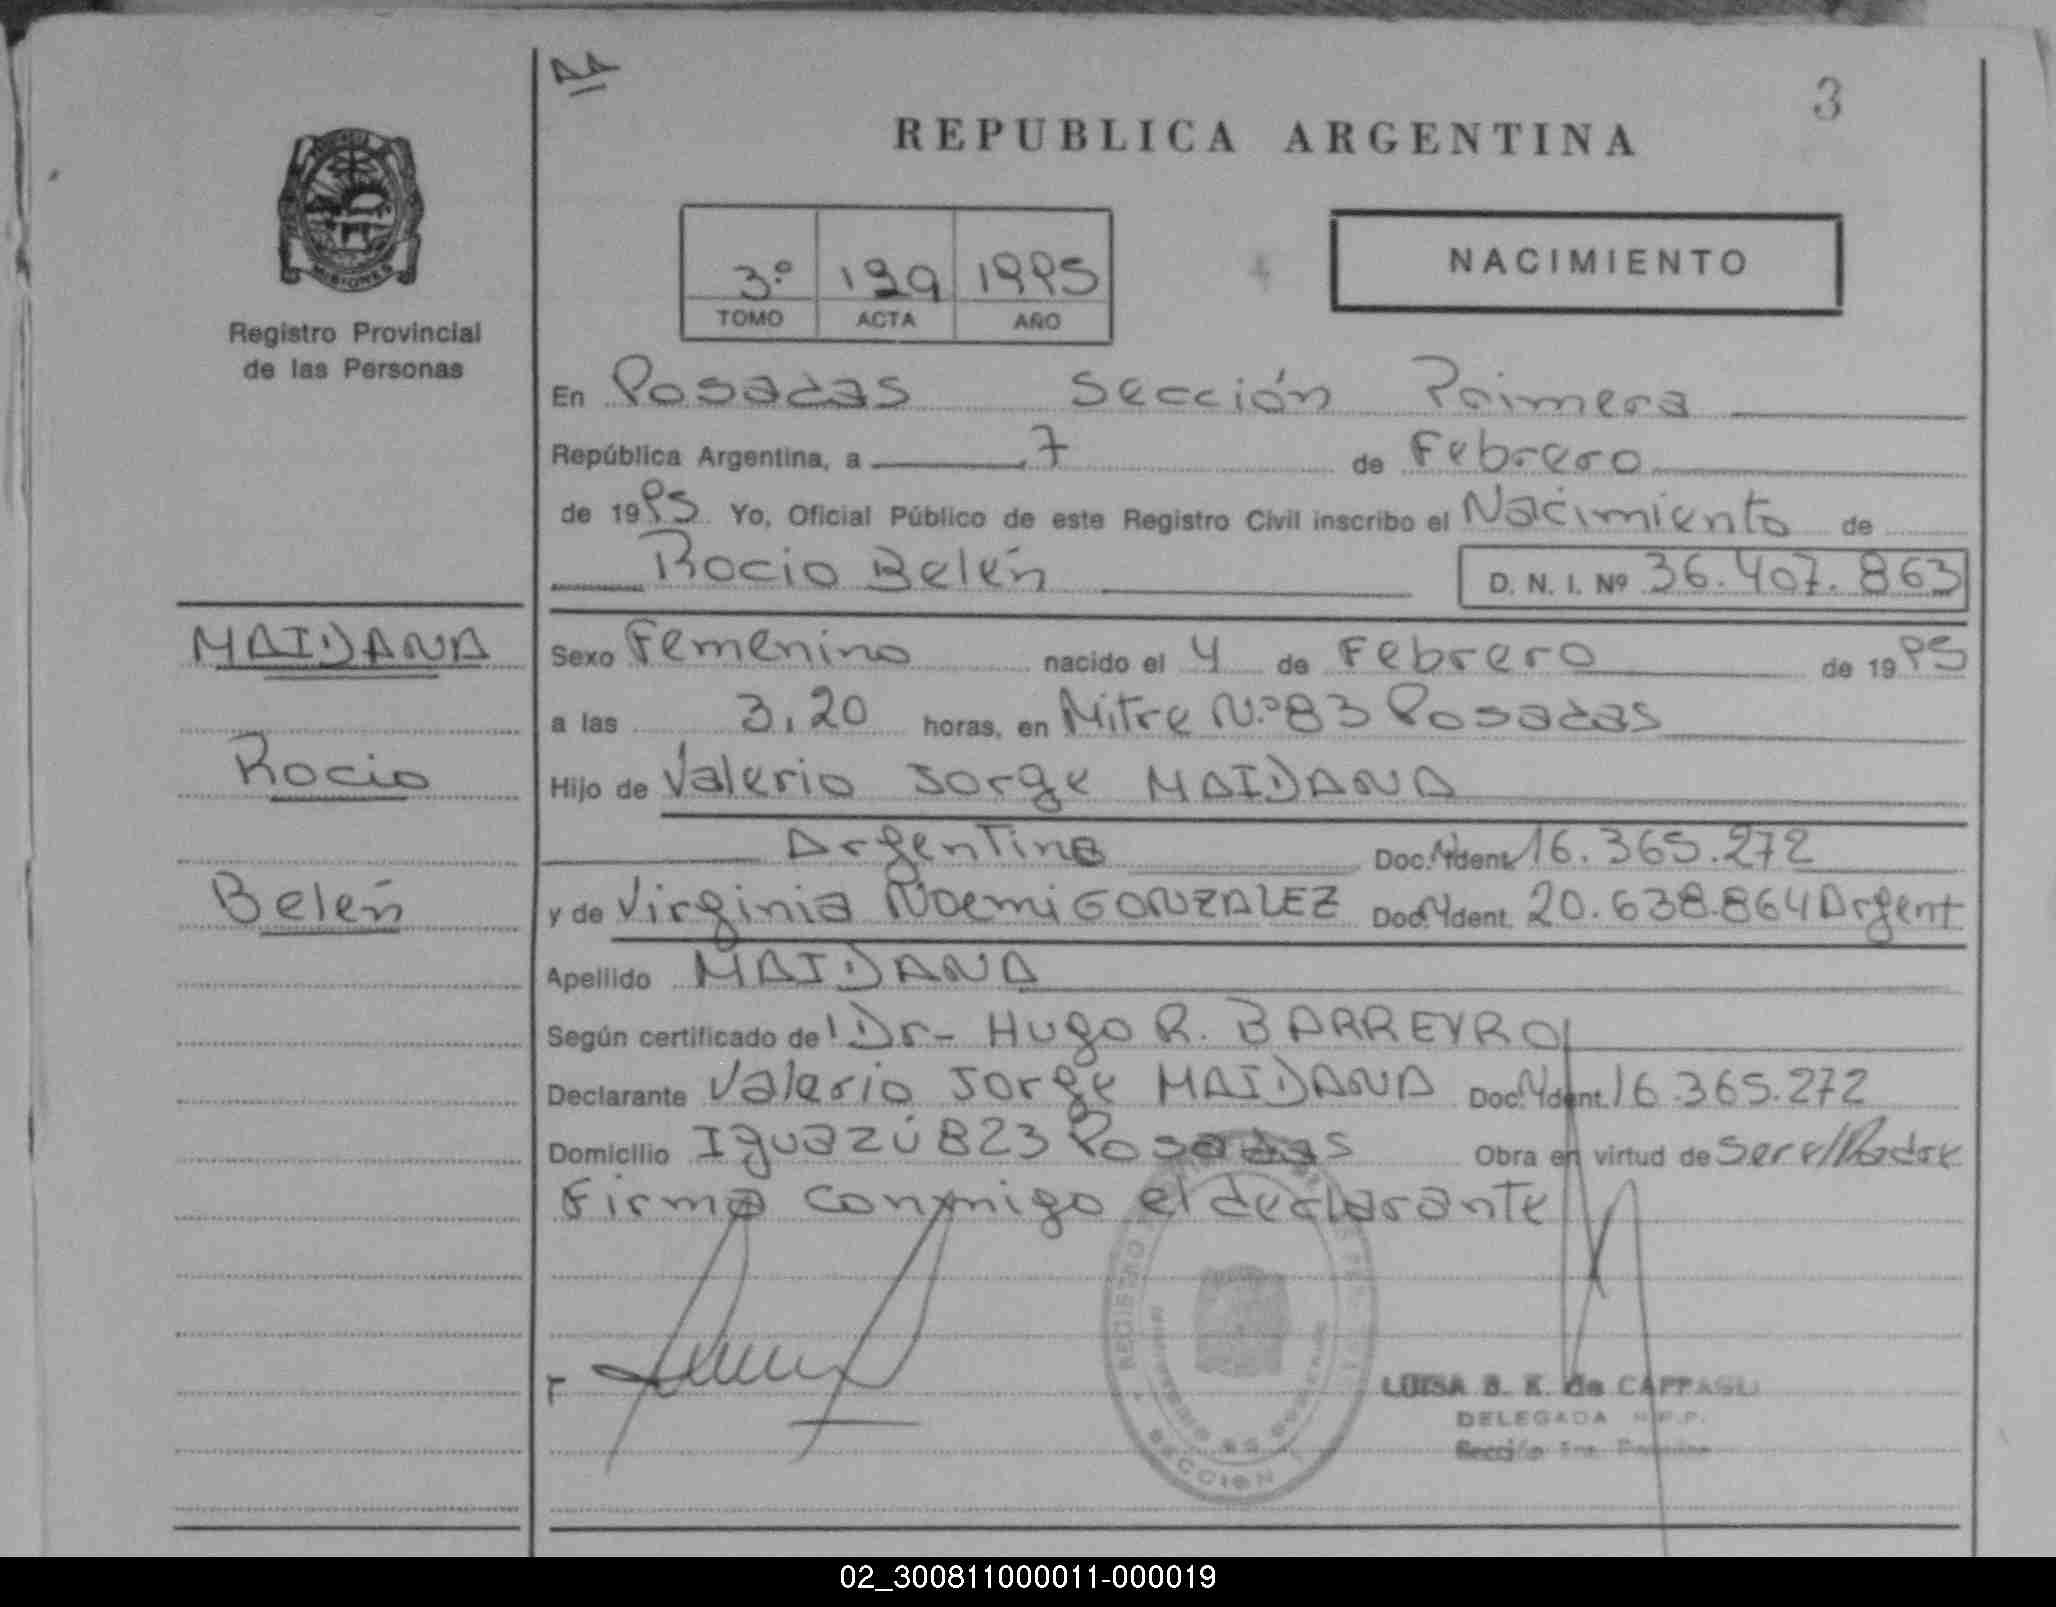 AA
3
REPUBLICA ARGENTINA
MISIONES
Registro Provincial
de las Personas
3º 199 1995
TOMO ACTA AÑO
NACIMIENTO
En Posadas Sección Primera
República Argentina, a 7 de Febrero
de 1995 Yo, Oficial Público de este Registro Civil inscribo el Nacimiento de
Rocio Belén D. N. I. Nº 36.407.863
MAIDANA
Rocio
Belén
Sexo Femenino nacido el 4 de Febrero de 1995
a las 3,20 horas, en Mitre N.º 83 Posadas
Hijo de Valerio Jorge MAIDANA
Argentina Doc. Ydent. 16.365.272
y de Virginia Noemi GONZALEZ Doc. Ydent. 20.638.864 Argent
Apellido MAIDANA
Según certificado de Dr- Hugo R. BARREYRO
Declarante Valerio Jorge MAIDANA Doc. Ydent. 16.365.272
Domicilio Iguazú 823 Posadas Obra en virtud de ser el Padre
Firma conmigo el declarante
REGISTRO
SECCION 1
LUISA B. K. de CAPPAGLI
DELEGADA R.P.P.
02_300811000011-000019